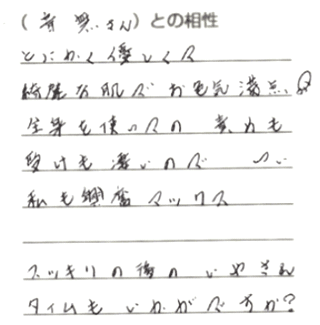 (音 黙さん)との相性
とにかく優しくて
綺麗な肌でお色気満点♡
全身を使っての責めも
受けも凄いので つい
私も興奮マックス
スッキリの後のいやされ
タイムもいかがですか?